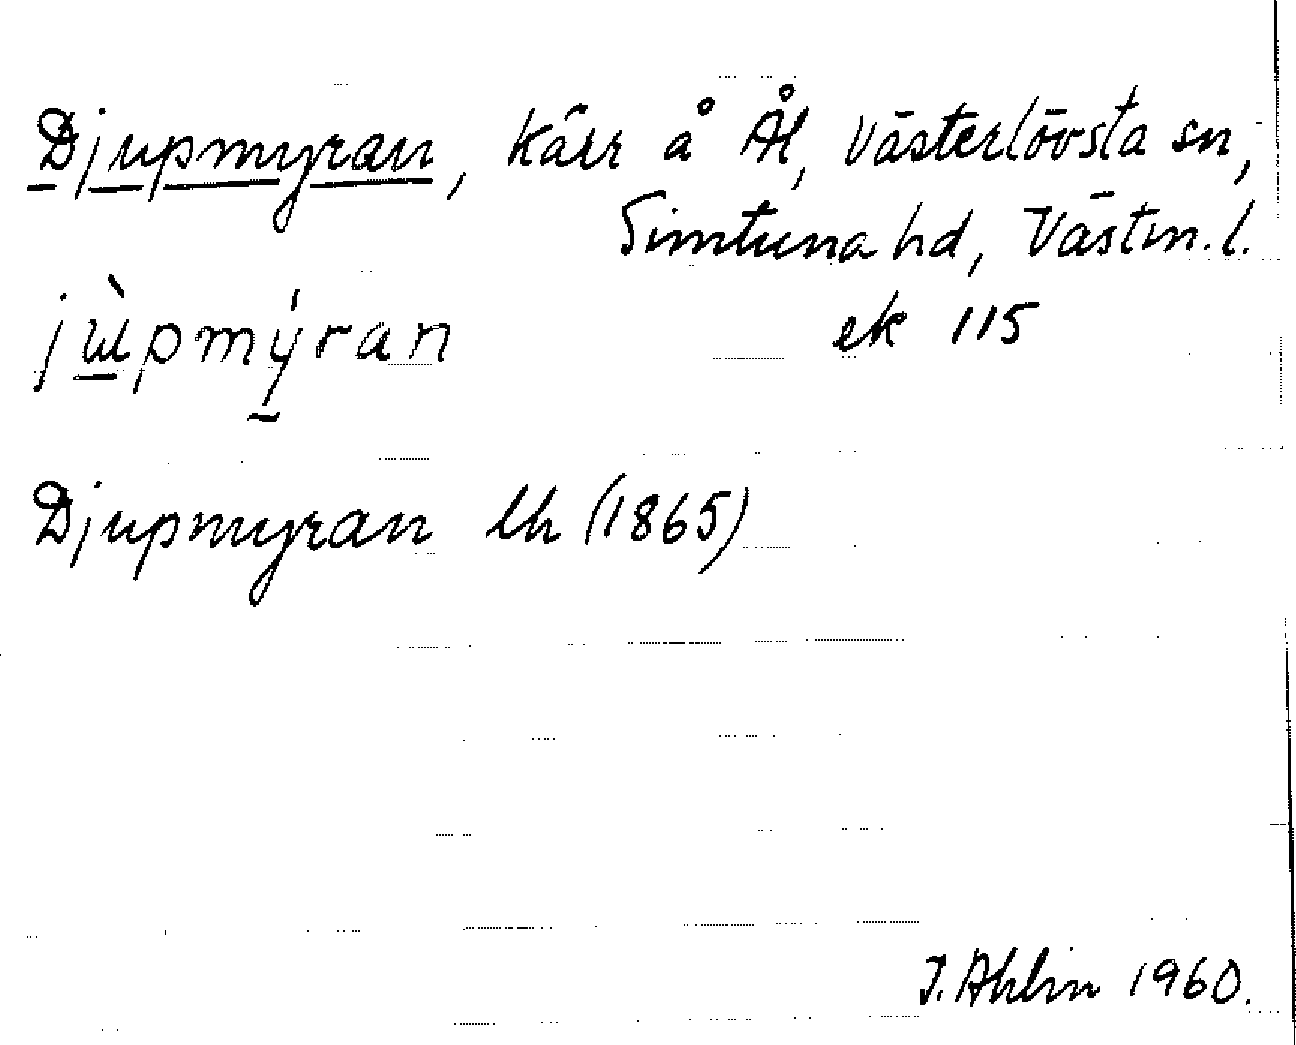 Djupmyran, kärr å Ål, Västerlövsta sn,
Simtuna hd, Västm. l.
jùpmýran ek 115
Djupmyran lh (1865)
I. Ahlin 1960.